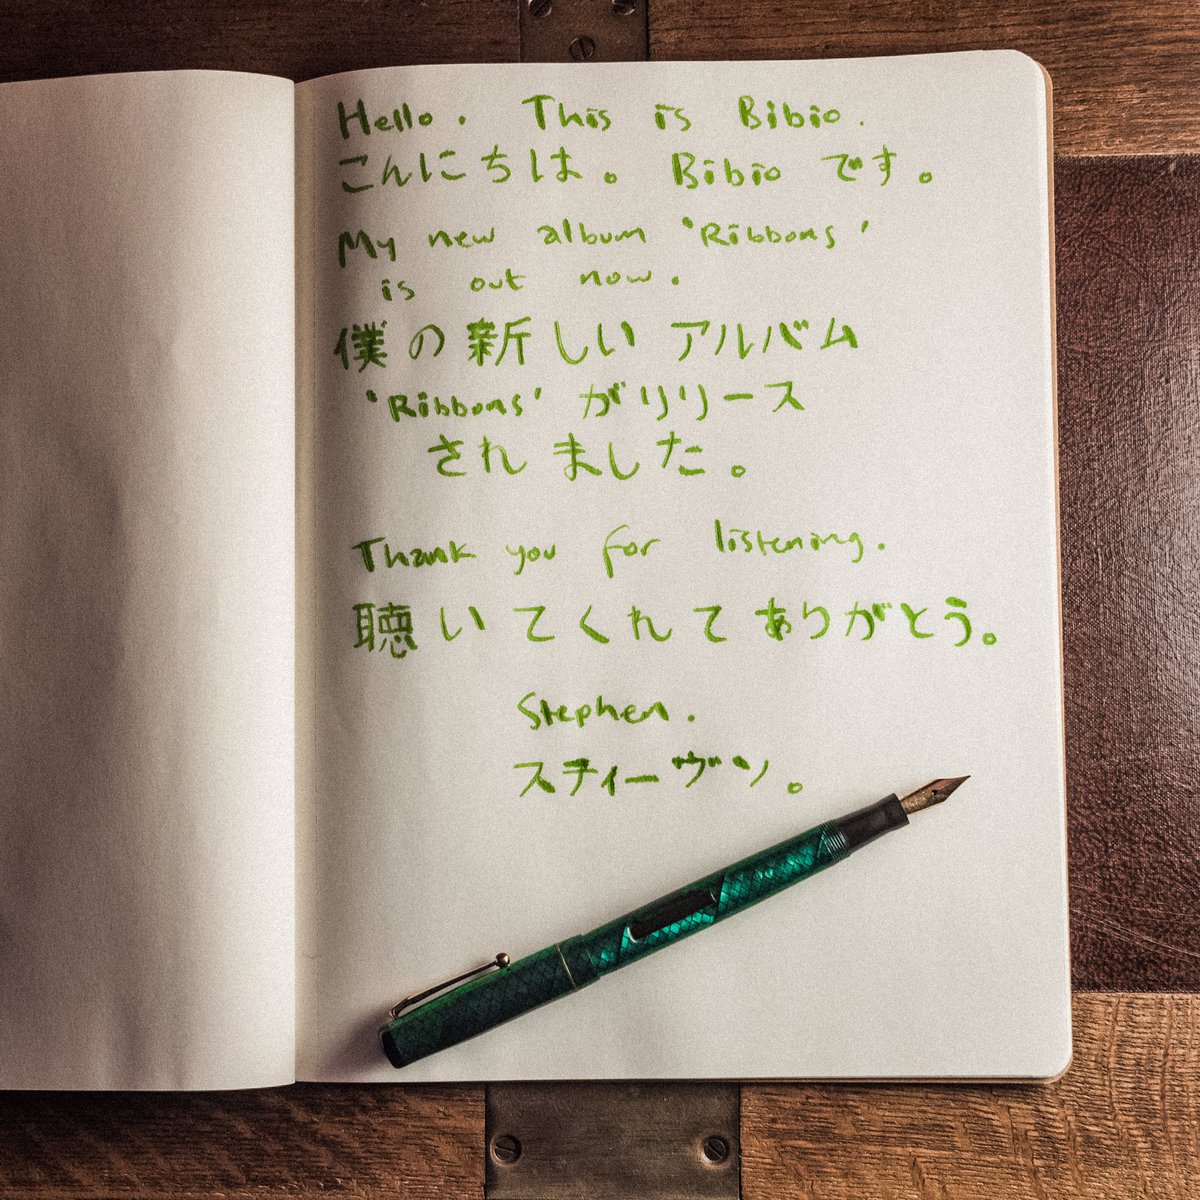 Hello. This is Bibio.
こんにちは。 Bibio です。
My new album 'Ribbons'
is out now.
僕の新しいアルバム
'Ribbons' がリリース
されました。
Thank you for listening.
聴いてくれてありがとう。
Stephen.
スティーヴン。